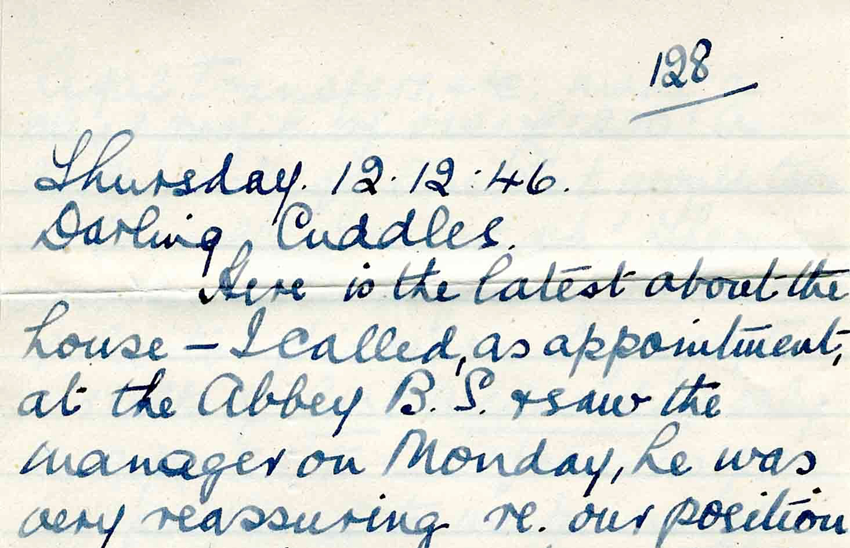 128
Thursday. 12.12:46.
Darling Cuddles.
Here is the latest about the
house – I called, as appointment,
at the Abbey B.S. & saw the
manager on Monday, he was
very reassuring re. our position